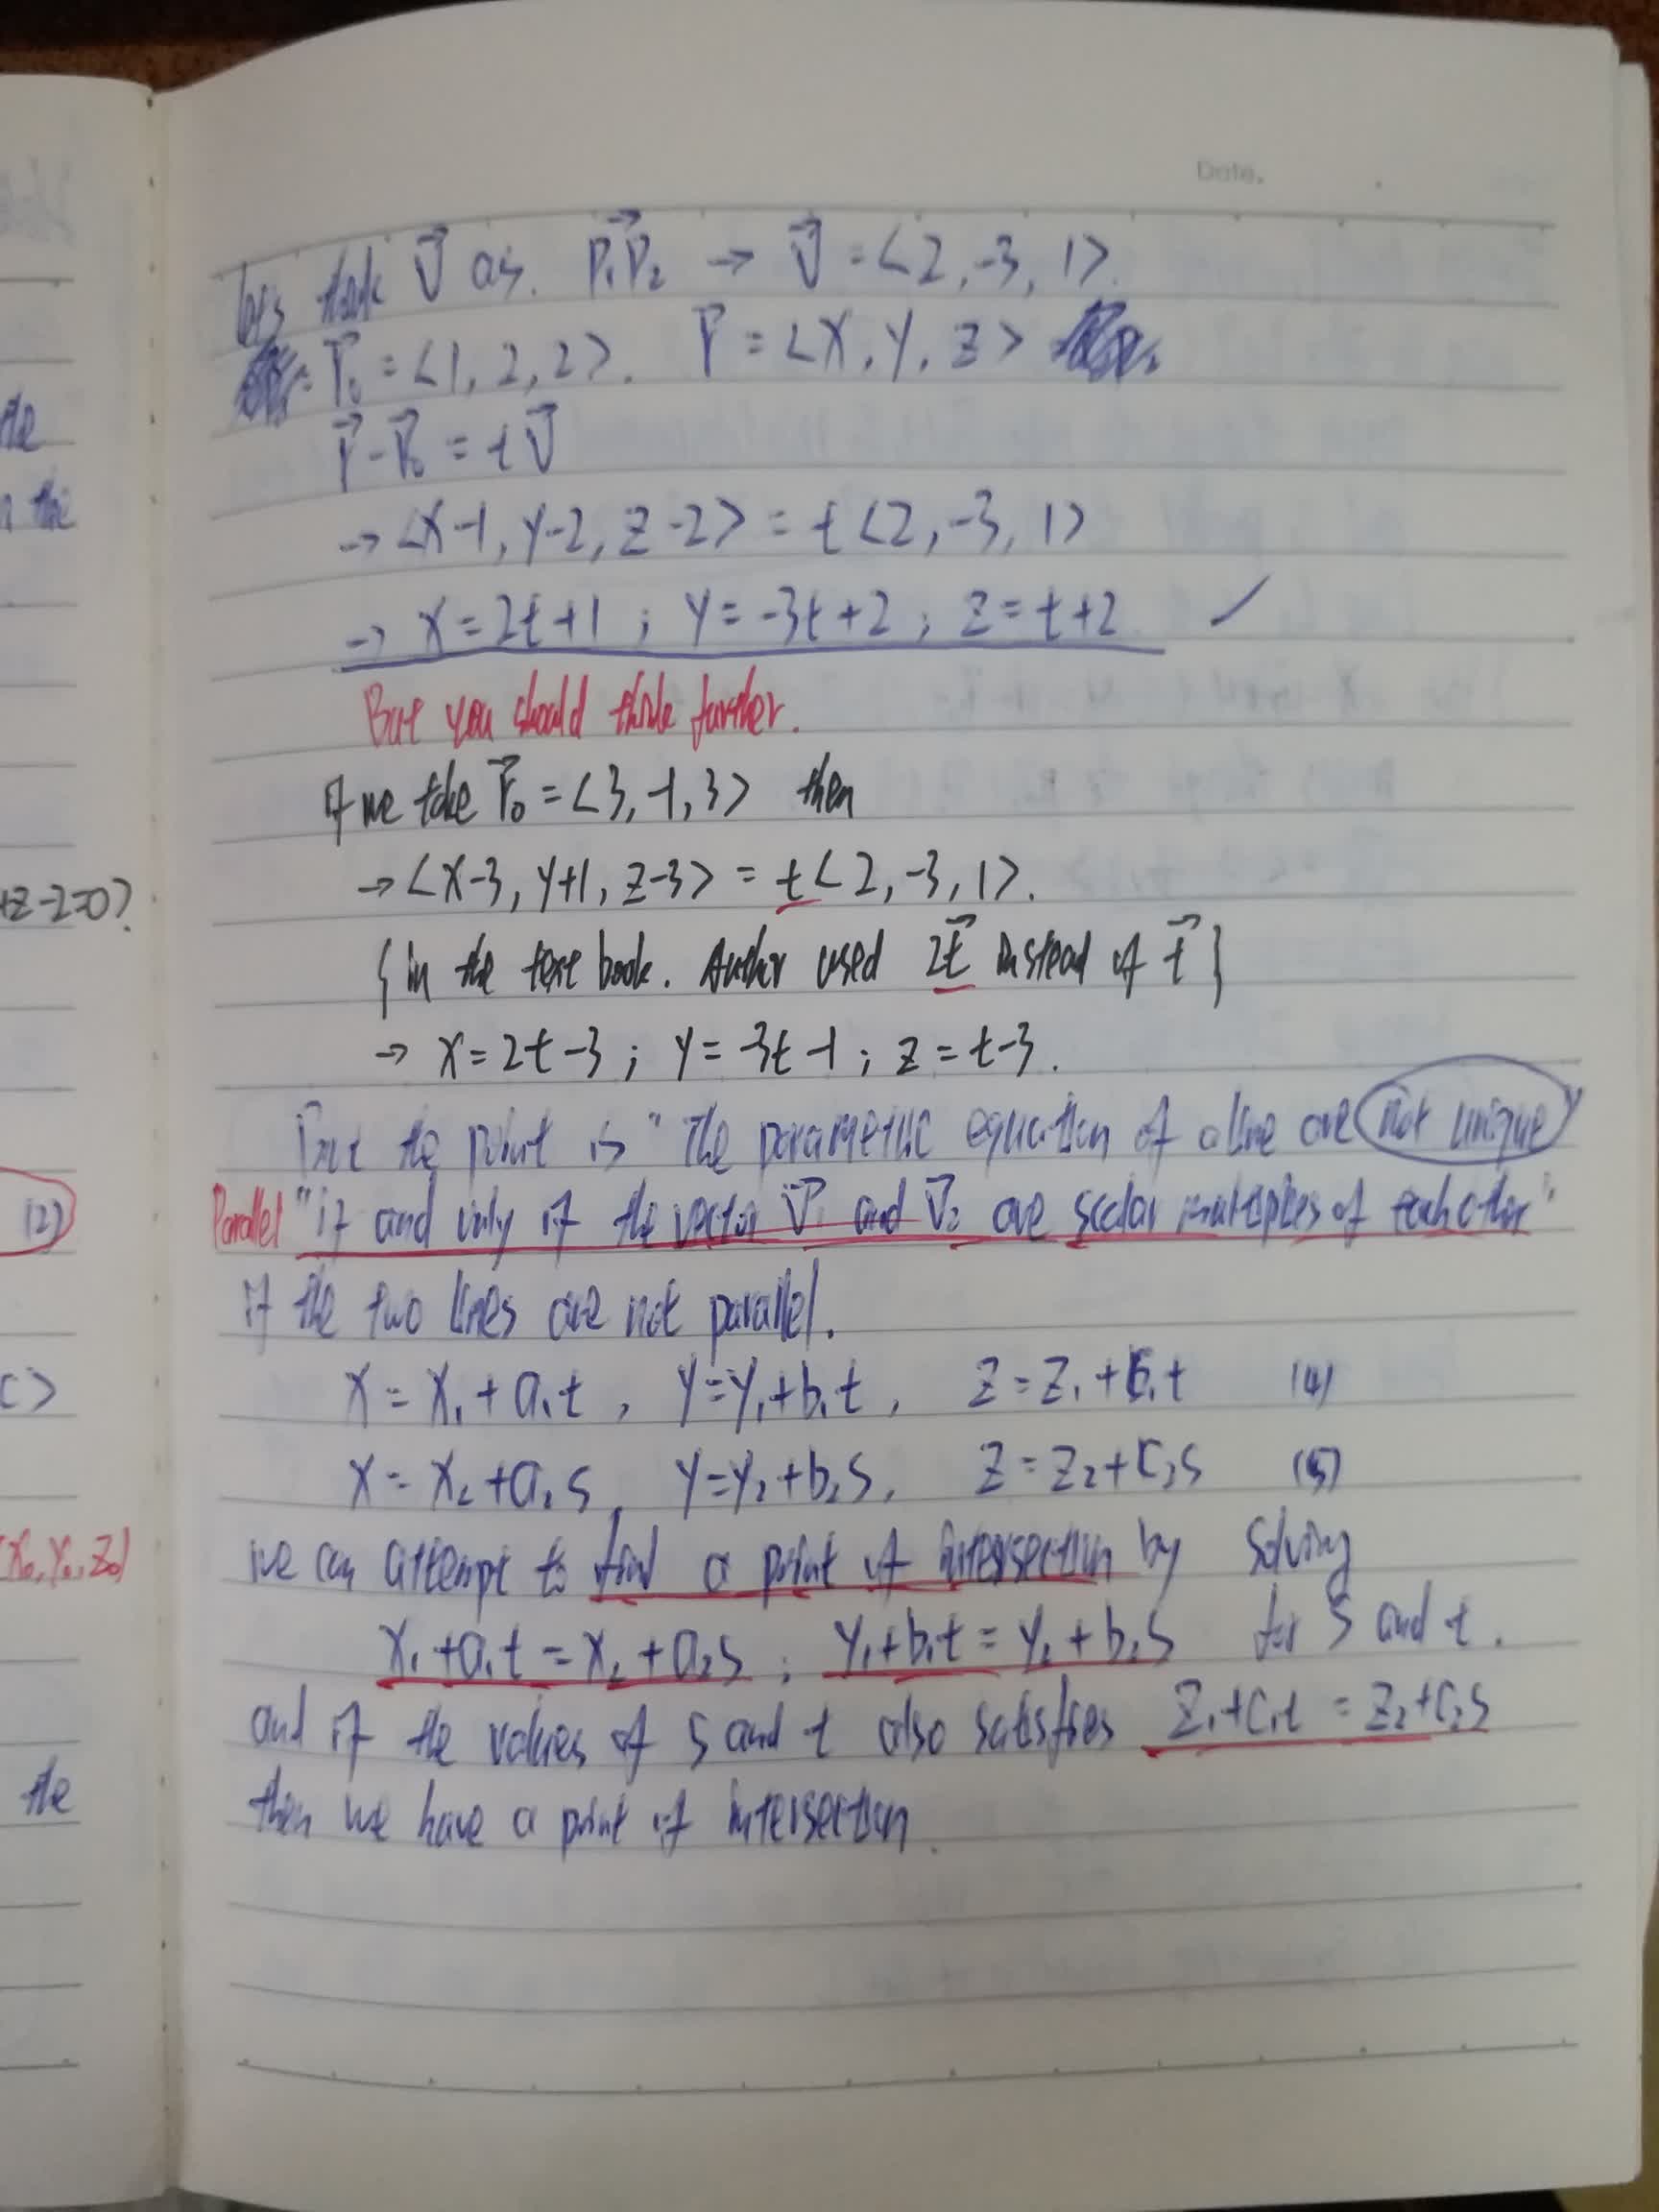 the
n the
+z-2=0?
(2)
c>
(x₀, y₀, z₀)
the
Date.
let's think v⃗ as. P₁P₂⃗ → v⃗ = <2, -3, 1>.
r⃗₀ = <1, 2, 2>. r⃗ = <x, y, z>
r⃗ - r⃗₀ = t v⃗
→ <x-1, y-2, z-2> = t<2, -3, 1>
→ x=2t+1 ; y=-3t+2 ; z=t+2 ✓
But you should think further.
if we take r⃗₀ = <3, -1, 3> then
→ <x-3, y+1, z-3> = t<2, -3, 1>.
{in the text book. Author used 2t⃗ instead of t⃗}
→ x=2t-3 ; y=-3t-1 ; z=t-3.
But the point is "The parametric equation of a line are not unique"
Parallel "if and only if the vector v⃗₁ and v⃗₂ are scalar multiples of each other"
if the two lines are not parallel.
x = x₁ + a₁t , y=y₁+b₁t , z=z₁+c₁t (4)
x = x₂ + a₂s , y=y₂+b₂s , z=z₂+c₂s (5)
we can attempt to find a point of intersection by solving
x₁+a₁t = x₂+a₂s ; y₁+b₁t = y₂+b₂s for s and t.
and if the values of s and t also satisfies z₁+c₁t = z₂+c₂s
then we have a point of intersection.